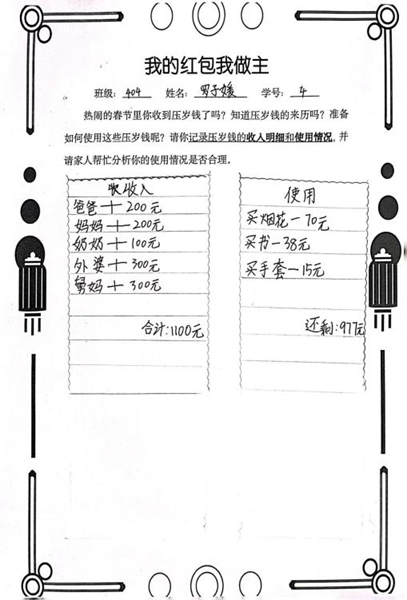 我的红包我做主
班级:404 姓名:罗子媛 学号:4
热闹的春节里你收到压岁钱了吗？知道压岁钱的来历吗？准备
如何使用这些压岁钱呢？请你记录压岁钱的收入明细和使用情况，并
请家人帮忙分析你的使用情况是否合理。
收入
爸爸+200元
妈妈+200元
奶奶+100元
外婆+300元
舅妈+300元
合计:1100元
使用
买烟花-70元
买书-38元
买手套-15元
还剩:977元